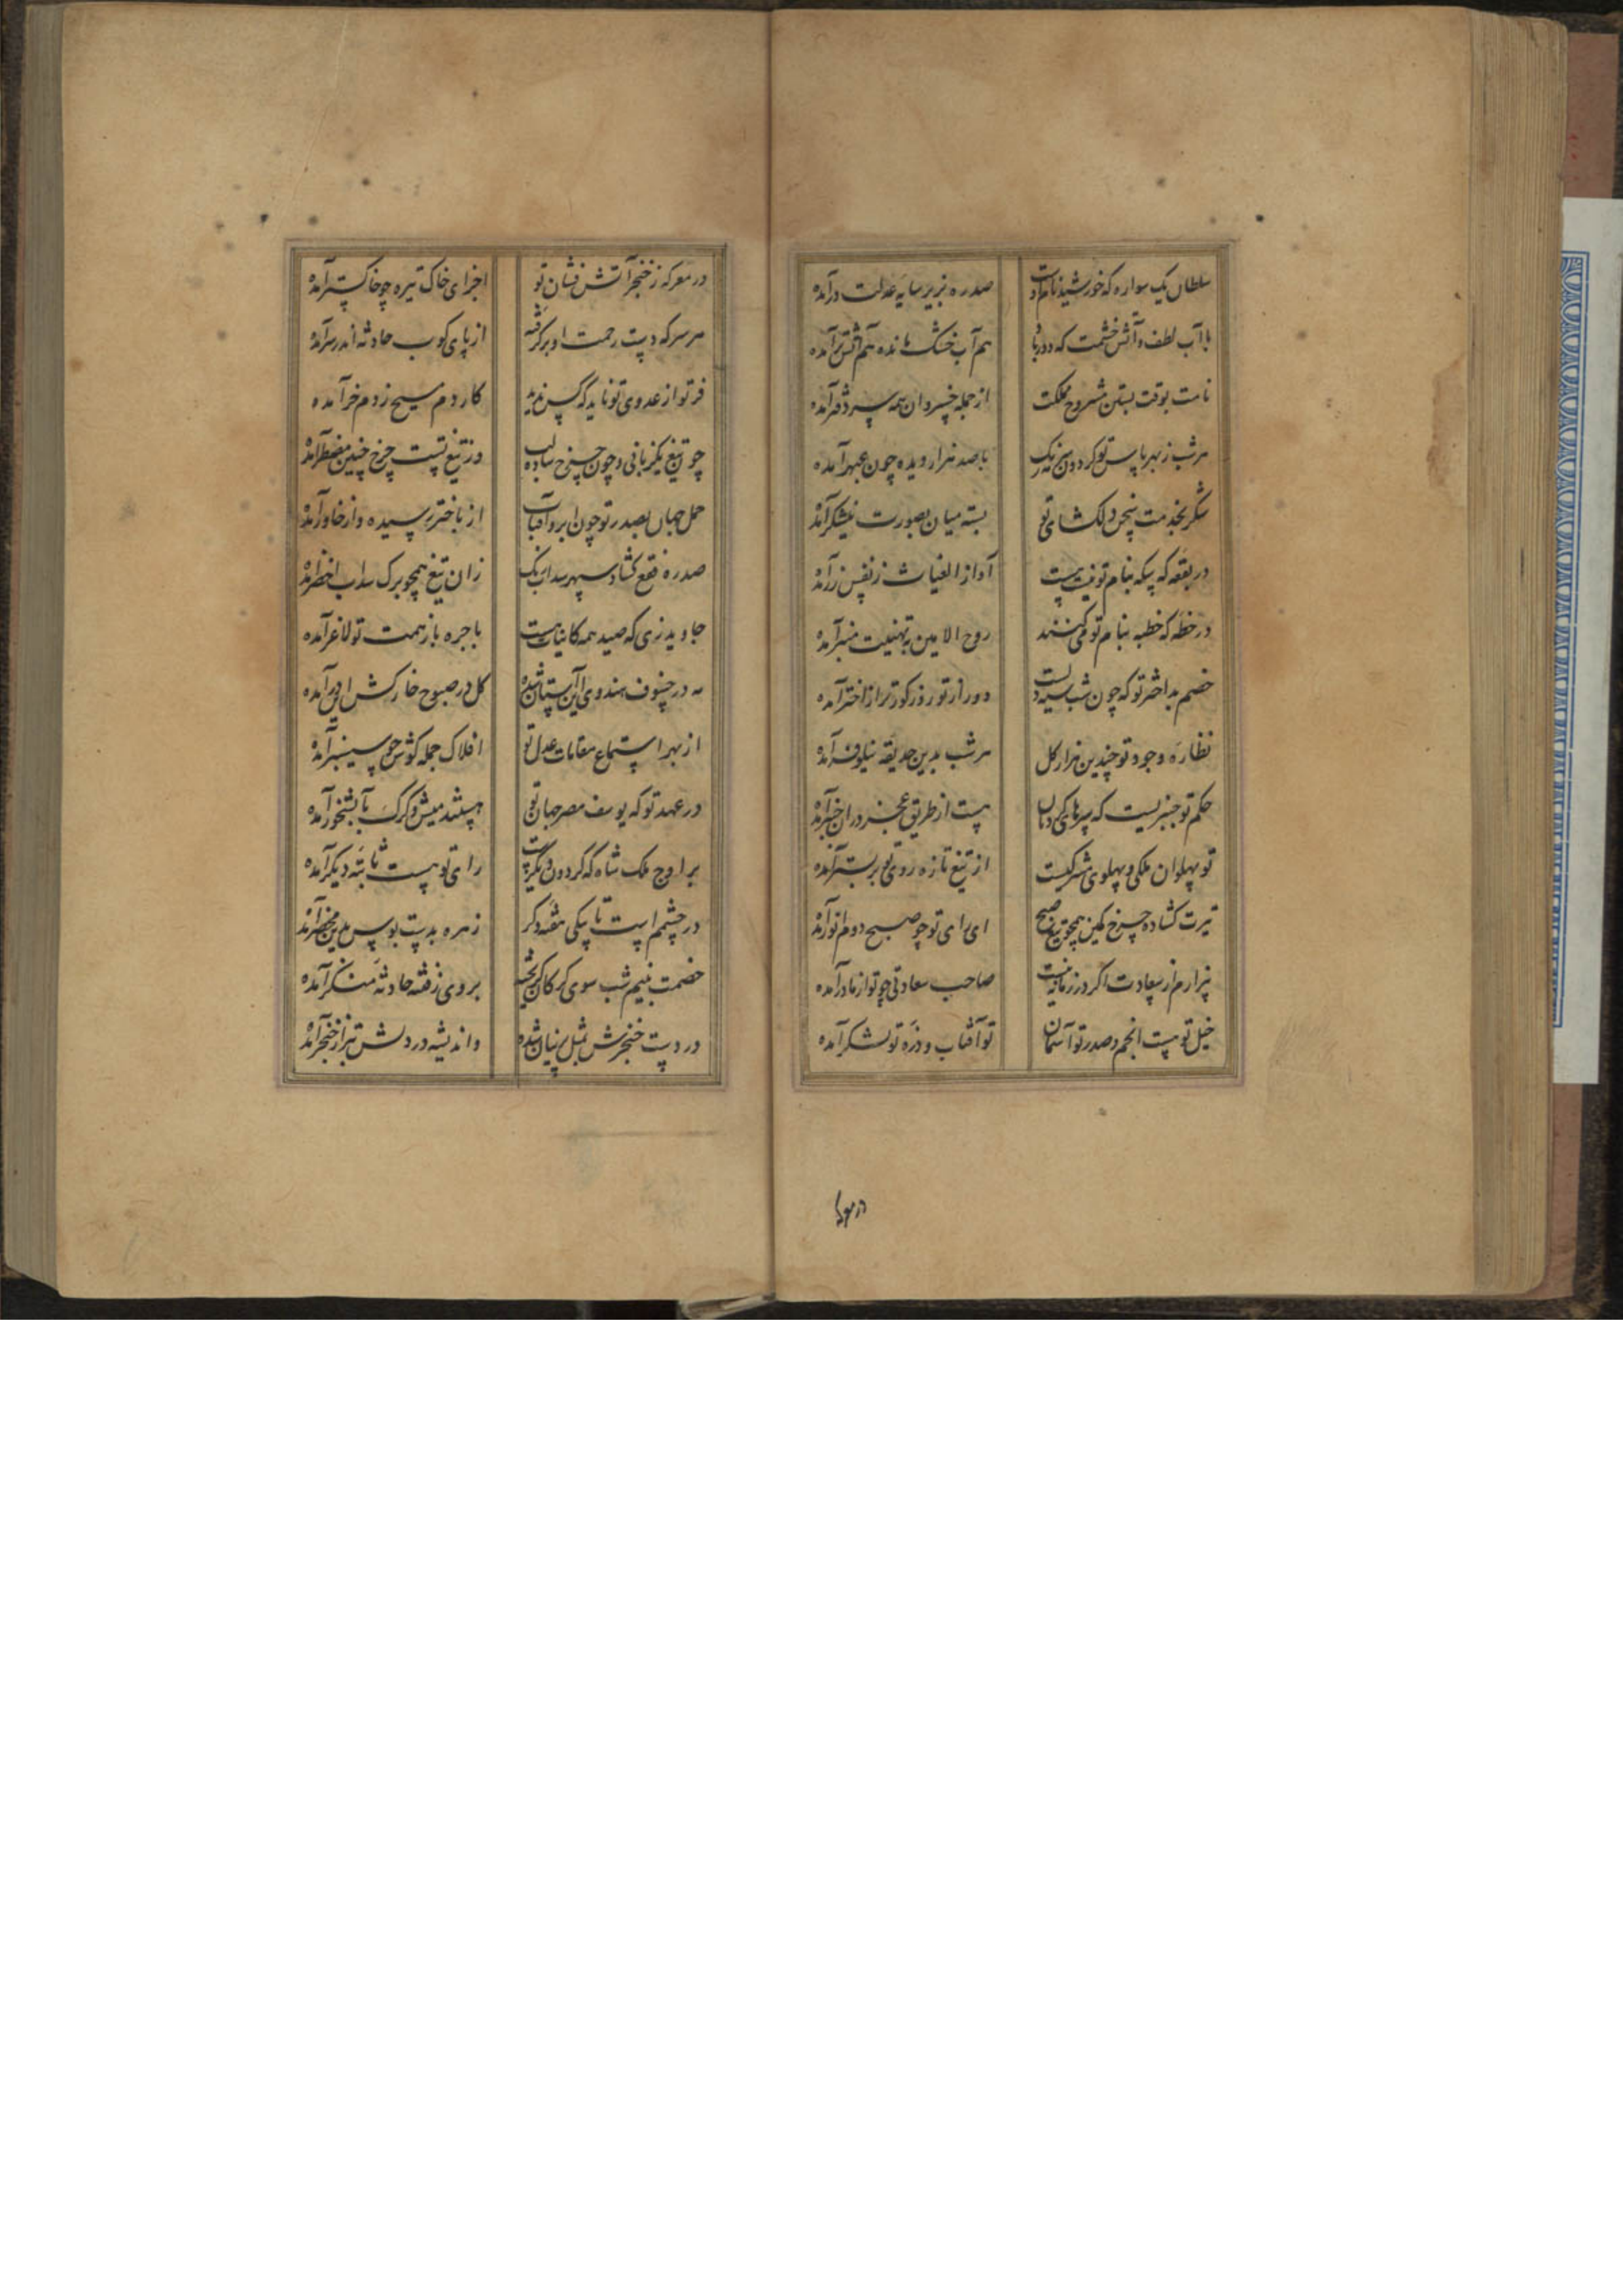 سلطان یک سواره که خورشید نام اوست صد ره بزیر سایه عدلت درآمده
با آب لطف و آتش خشمت که دور باد هم آب خشک مانده هم آتش تر آمده
نامت بوقت بستن مشروح مملکت از جمله خسروان همه سر دفتر آمده
هر شب ز بهر پاس تو گردون با صد هزار دیده چون عبهر آمده
شکر بخدمت سخن دلکشای تو بسته میان بصورت نیشکر آمده
در بقعه که سکه بنام تو نیست آواز الغیاث ز نفس زر آمده
در خطه که خطبه بنام تو می کنند روح الامین به تهنیت منبر آمده
خصم بد اختر تو که چون شب سیه دلست دور از تو روز کورتر از اختر آمده
نظاره وجود تو چندین هزار کل هر شب بدین حدیقه نیلوفر آمده
حکم تو چنبریست که سرهای هست از طریق عجز دران چنبر آمده
تو پهلوان ملکی و پهلوی مشرکیست از تیغ تازه روی تو بر بستر آمده
تیرت کشاده چرخ کمین همچو تیغ صبح ای رای تو چو صبح دوم انور آمده
بیزارم از سعادت اگر در زمانه نیست صاحب سعادتی چو تو از مادر آمده
خیل تو هست انجم و صدر تو آسمان تو آفتاب و ذره تو لشکر آمده
در معرکه
در معرکه ز خنجر آتش فشان تو اجزای خاک تیره چو خاکستر آمده
هر سر که دست رحمت او بر گرفته از پای کوب حادثه اندر سر آمده
فر تو از عدوی تو ناید که کس ندید کار دم مسیح ز دم خر آمده
چو تیغ یکزبانی و چون چرخ ساده لب وز تیغ تست چرخ چنین مضطر آمده
حمل جهان بصدر تو چون ابر و آفتاب از باختر رسیده و از خاور آمده
صد ره فقع کشاد سپهر سداب رنک زان تیغ همچو برک سداب اخضر آمده
جاوید زی که صید همه کاینات هست با جره باز همت تو لاغر آمده
مه در خسوف هندوی این آستان شده کل در صبوح خارکش این در آمده
از بهر استماع مقامات عدل تو افلاک جمله کوش چو سیسنبر آمده
در عهد تو که یوسف مصر جهان تو هستند میش و کرک بآبشخور آمده
بر اوج ملک شاه که گردون دیگرست رای تو هست ثابته دیکر آمده
در چشمم است تا یکی هفته دکر زهره بدست بوس بدین محضر آمده
خصمت بنیم شب سوی کرکان کریخته بر وی ز فتنه حادثه منکر آمده
در دست خنجرش بمثل پرنیان شده واندیشه در دلش بتر از خنجر آمده